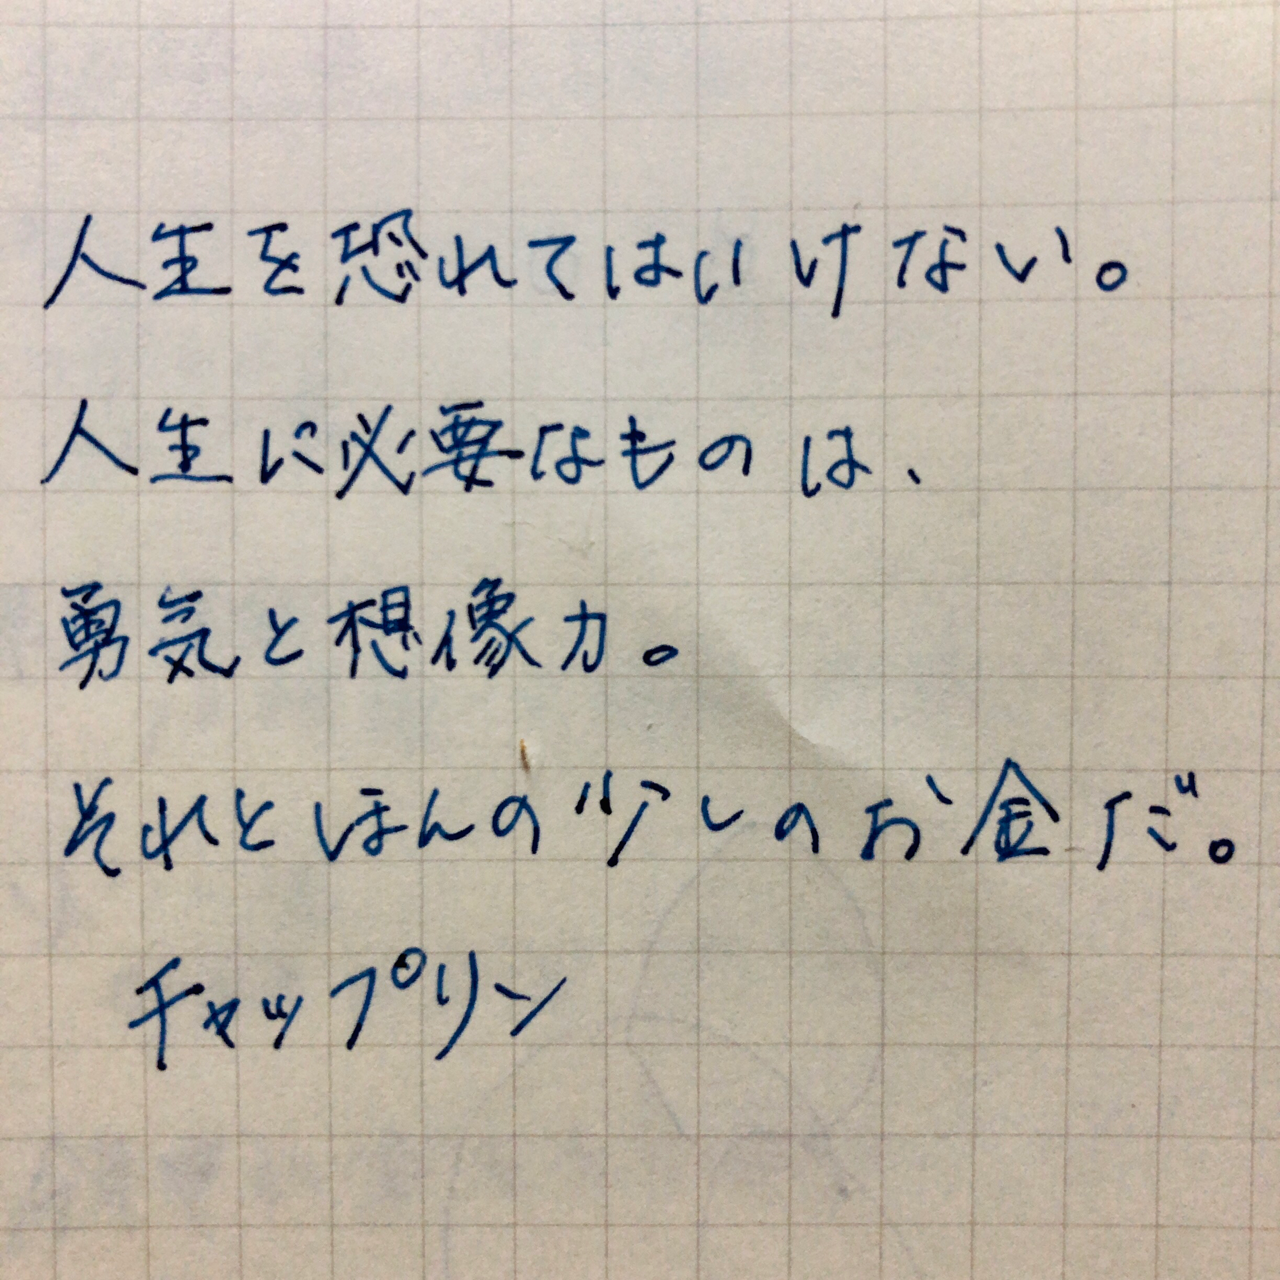 人生を恐れてはいけない。
人生に必要なものは、
勇気と想像力。
それとほんの少しのお金だ。
チャップリン